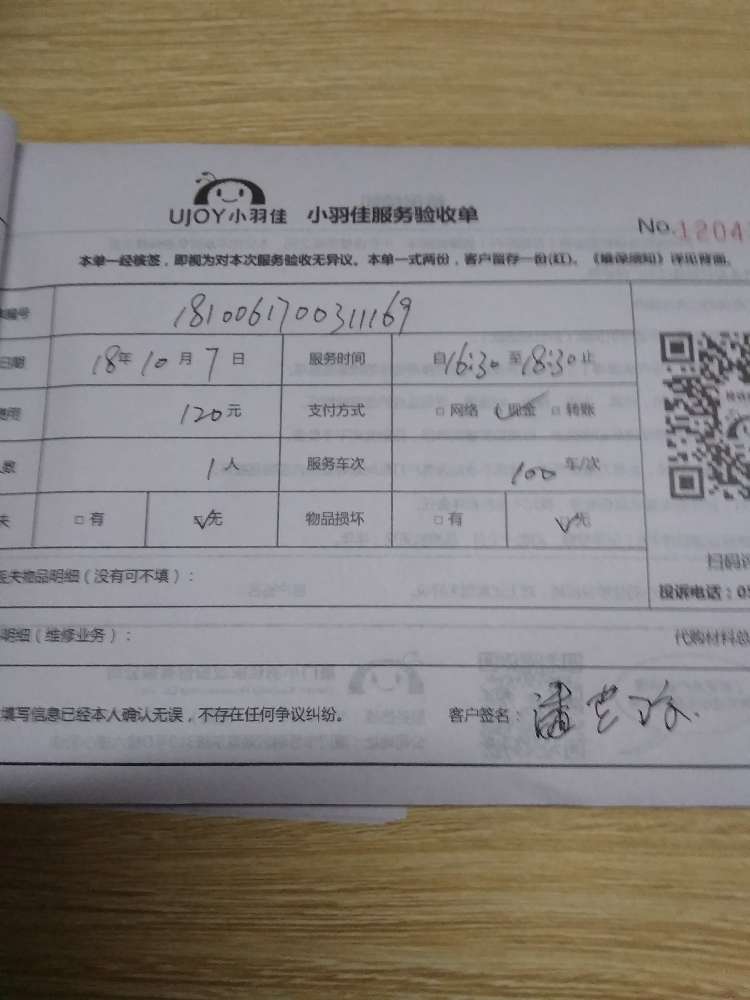 UJOY小羽佳 小羽佳服务验收单
No.1204
本单一经核签，即视为对本次服务验收无异议。本单一式两份，客户留存一份(红)。《维保须知》详见背面。
编号 1810061700311169
日期 18年10月7日 服务时间 自16:30至18:30止
120元 支付方式 □网络 ☑现金 □转账
1人 服务车次 100车/次
□有 ☑无 物品损坏 □有 ☑无
扫码
失物品明细（没有可不填）： 投诉电话：05
明细（维修业务）： 代购材料总
填写信息已经本人确认无误，不存在任何争议纠纷。 客户签名：潘